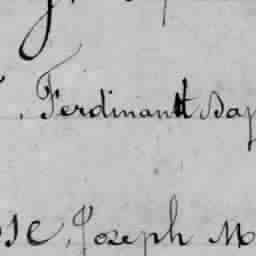 Ferdinantt Bap
Joseph M